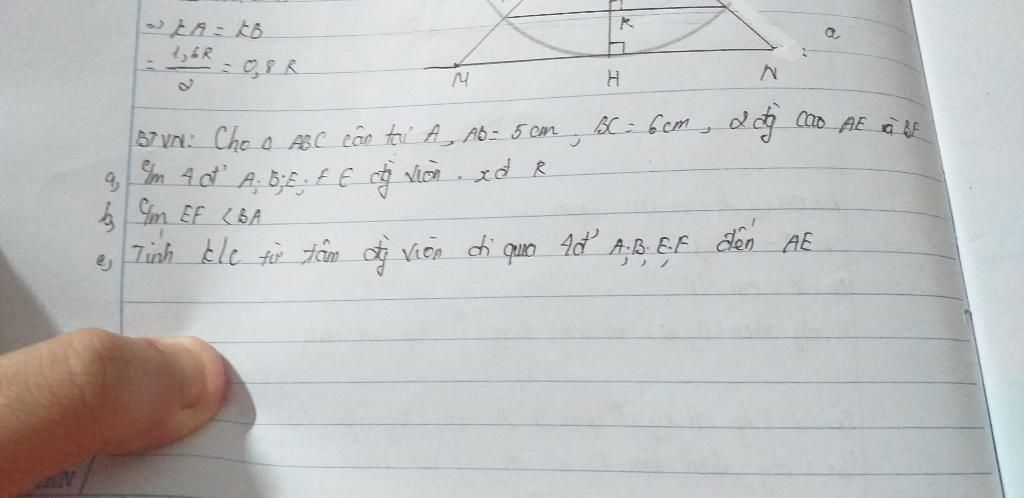 => KA = KB
= 1,6R / 2 = 0,8 R
K
a
M
H
N
BTVN: Cho Δ ABC cân tại A, AB = 5cm, BC = 6cm, 2 đg cao AE và BF
a, C/m 4 đ' A; B; E; F ∈ đg tròn. xđ R
b, C/m EF < BA
c, Tính k/c từ tâm đg tròn đi qua 4đ' A; B; E; F đến AE